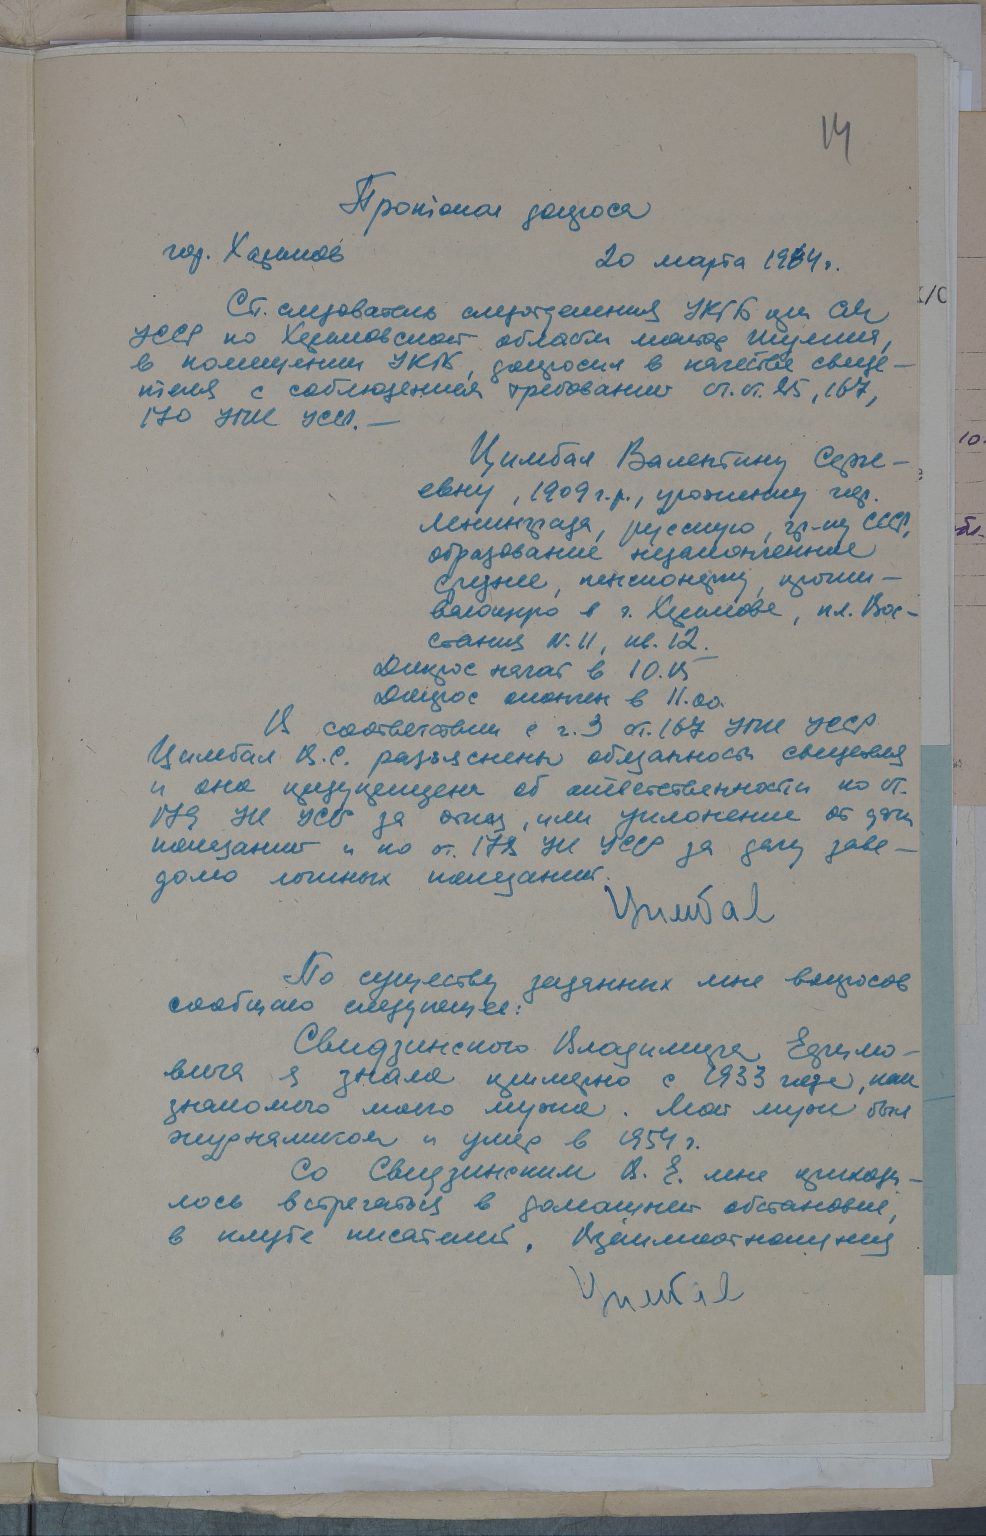 14
Протокол допроса
гор. Харьков 20 марта 1964 г.
Ст. следователь следотделения УКГБ при СМ
УССР по Харьковской области майор
в помещении УКГБ, допросил в качестве свиде-
теля с соблюдением требований ст.ст. 85, 167,
170 УПК УССР. —
Цимбал Валентину Серге-
евну, 1909 г.р., уроженку гор.
Ленинграда, русскую, гр-ку СССР,
образование незаконченное
среднее, пенсионерку, прожи-
вающую в г. Харькове, пл. Вос-
стания N. 11, кв. 12.
Допрос начат в 10.15
Допрос окончен в 11.00.
В соответствии с ч. 3 ст. 167 УПК УССР
Цимбал В.С. разъяснены обязанности свидетеля
и она предупреждена об ответственности по ст.
179 УК УССР за отказ, или уклонение от дачи
показаний и по ст. 178 УК УССР за дачу заве-
домо ложных показаний.
Цимбал
По существу заданных мне вопросов
сообщаю следующее:
Свидзинского Владимира Ефимо-
вича я знала примерно с 1933 года, как
знакомого моего мужа. Мой муж был
журналистом и умер в 1954 г.
Со Свидзинским В. Е. мне приходи-
лось встречаться в домашней обстановке,
в клубе писателей. Взаимоотношения
Цимбал
10.